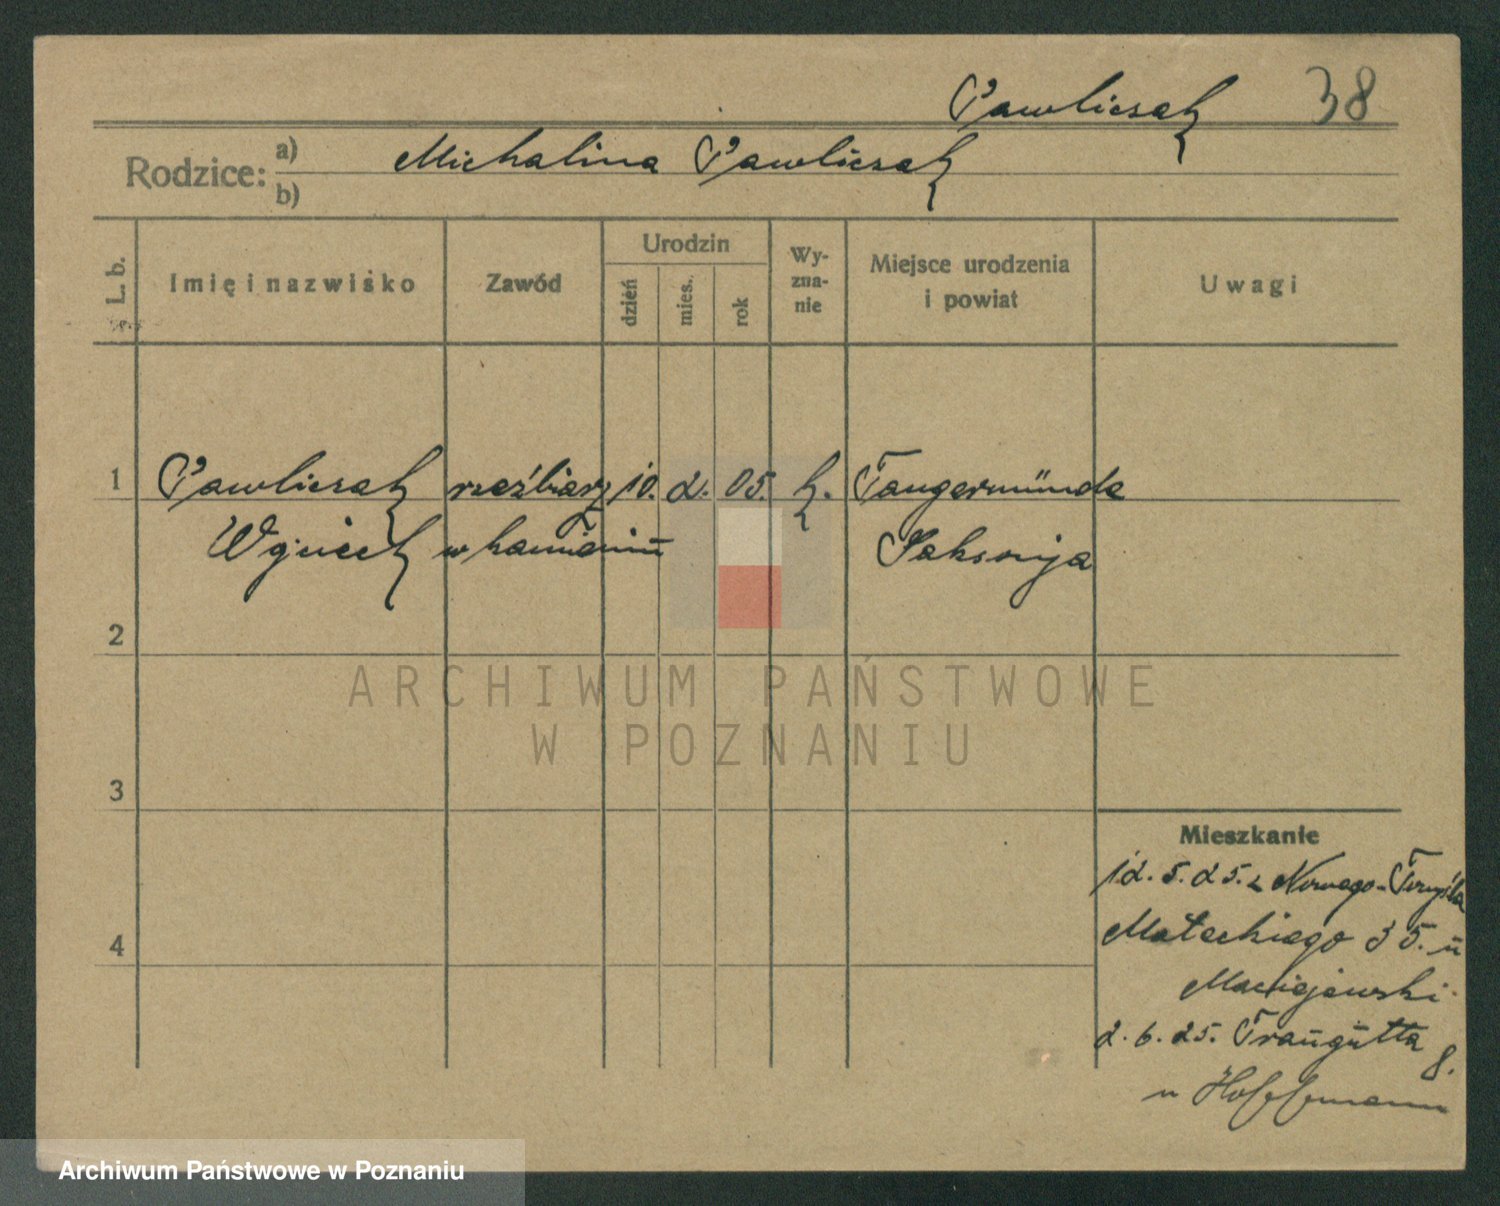 Pawliczak 38
Rodzice: a) Michalina Pawliczak
b)
L. b.
Imię i nazwisko
Zawód
Urodzin
dzień
mies.
rok
Wy-
zna-
nie
Miejsce urodzenia
i powiat
Uwagi
1 Pawliczak rzeźbiarz 10. 2. 05. k. Tangermünde
w kamieniu Saksonja
2
ARCHIWUM PAŃSTWOWE
W POZNANIU
3
Mieszkanie
12. 5. 25. z Nowego-Tomyśla
4
Mateckiego 35. u
Maciejewski.
2. 6. 25. Traugutta 8.
u Hoffmann
Archiwum Państwowe w Poznaniu